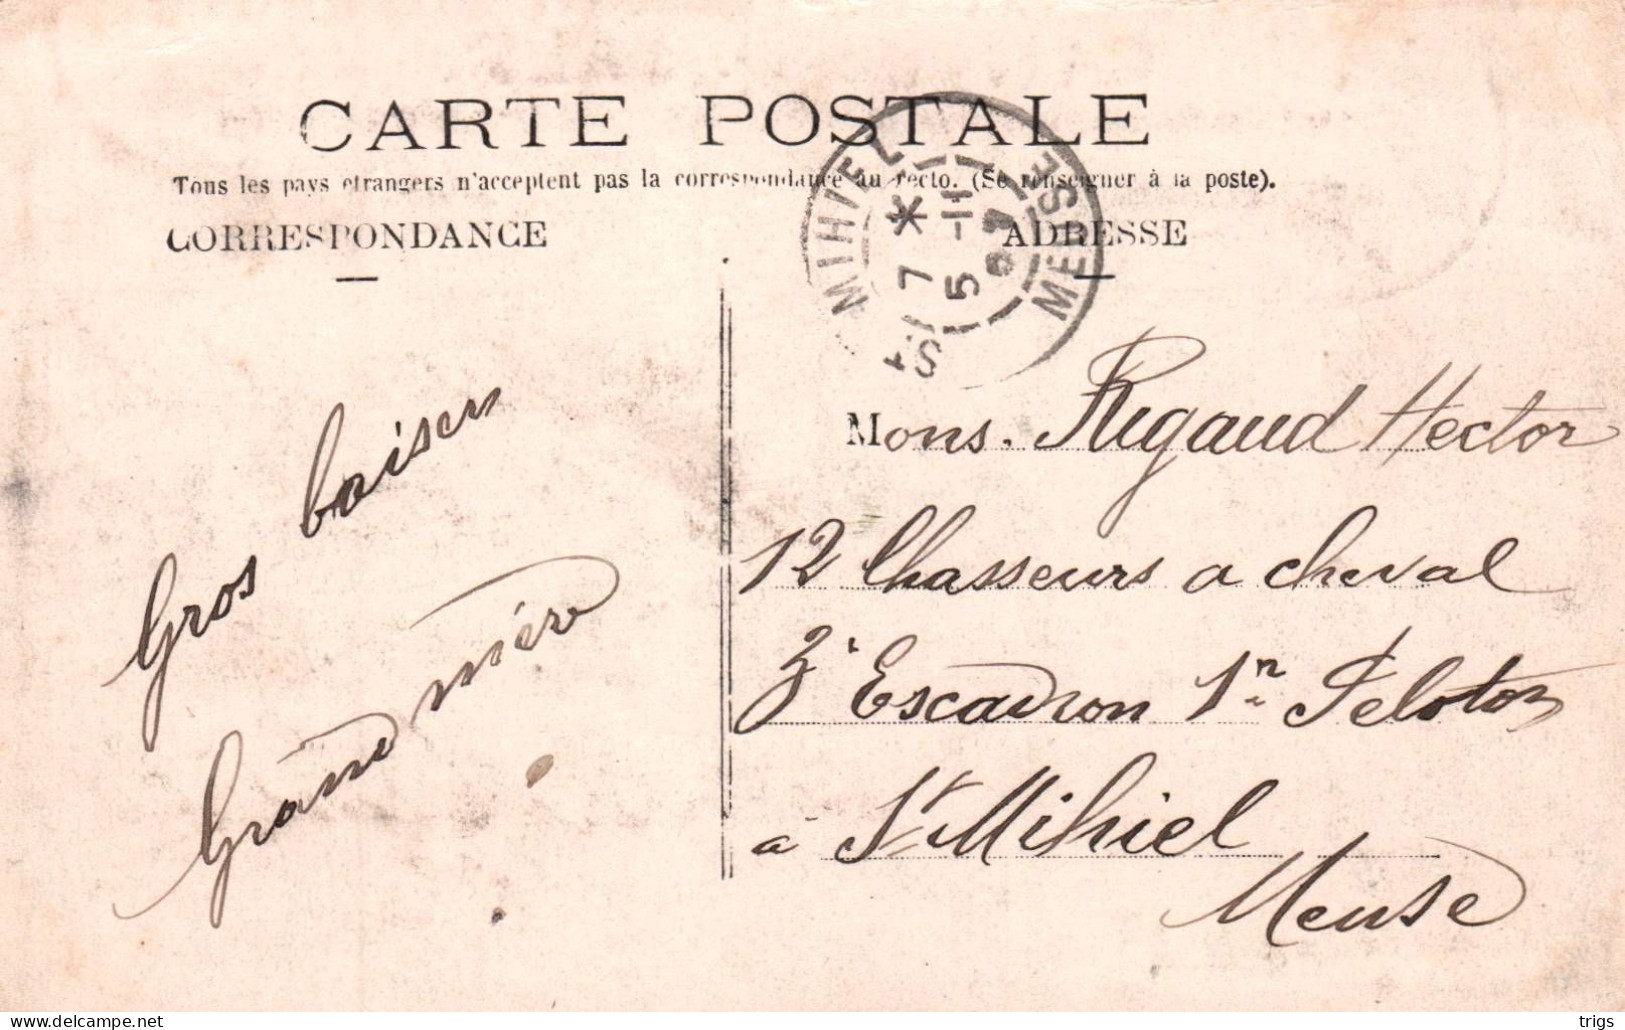 CARTE POSTALE
Tous les pays etrangers n'acceptent pas la correspondance au recto. (Se renseigner à la poste).
CORRESPONDANCE
ADRESSE
ST MIHIEL
MEUSE
7 *
5 -11
Gros baisers
Grand mère
Mons. Rigaud Hector
12 Chasseurs a cheval
3e Escadron 1er Peloton
à St Mihiel
Meuse
delcampe.net
trigs